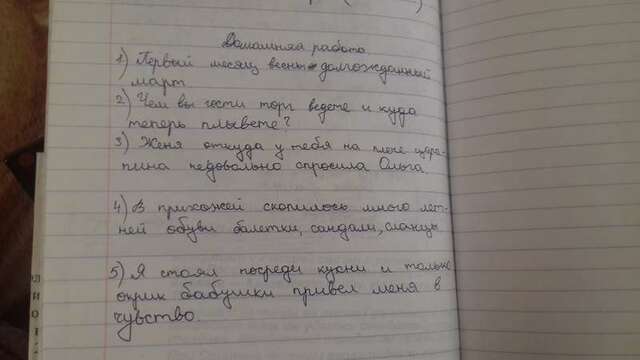 Домашняя работа.
1) Первый месяц весны долгожданный
март
2) Чем вы гости торг ведете и куда
теперь плывете?
3) Женя откуда у тебя на плече цара-
пина недовольно спросила Ольга.
4) В прихожей скопилось много лет-
ней обуви балетки, сандали, сланцы
5) Я стоял посреди кухни и только
окрик бабушки привел меня в
чувство.